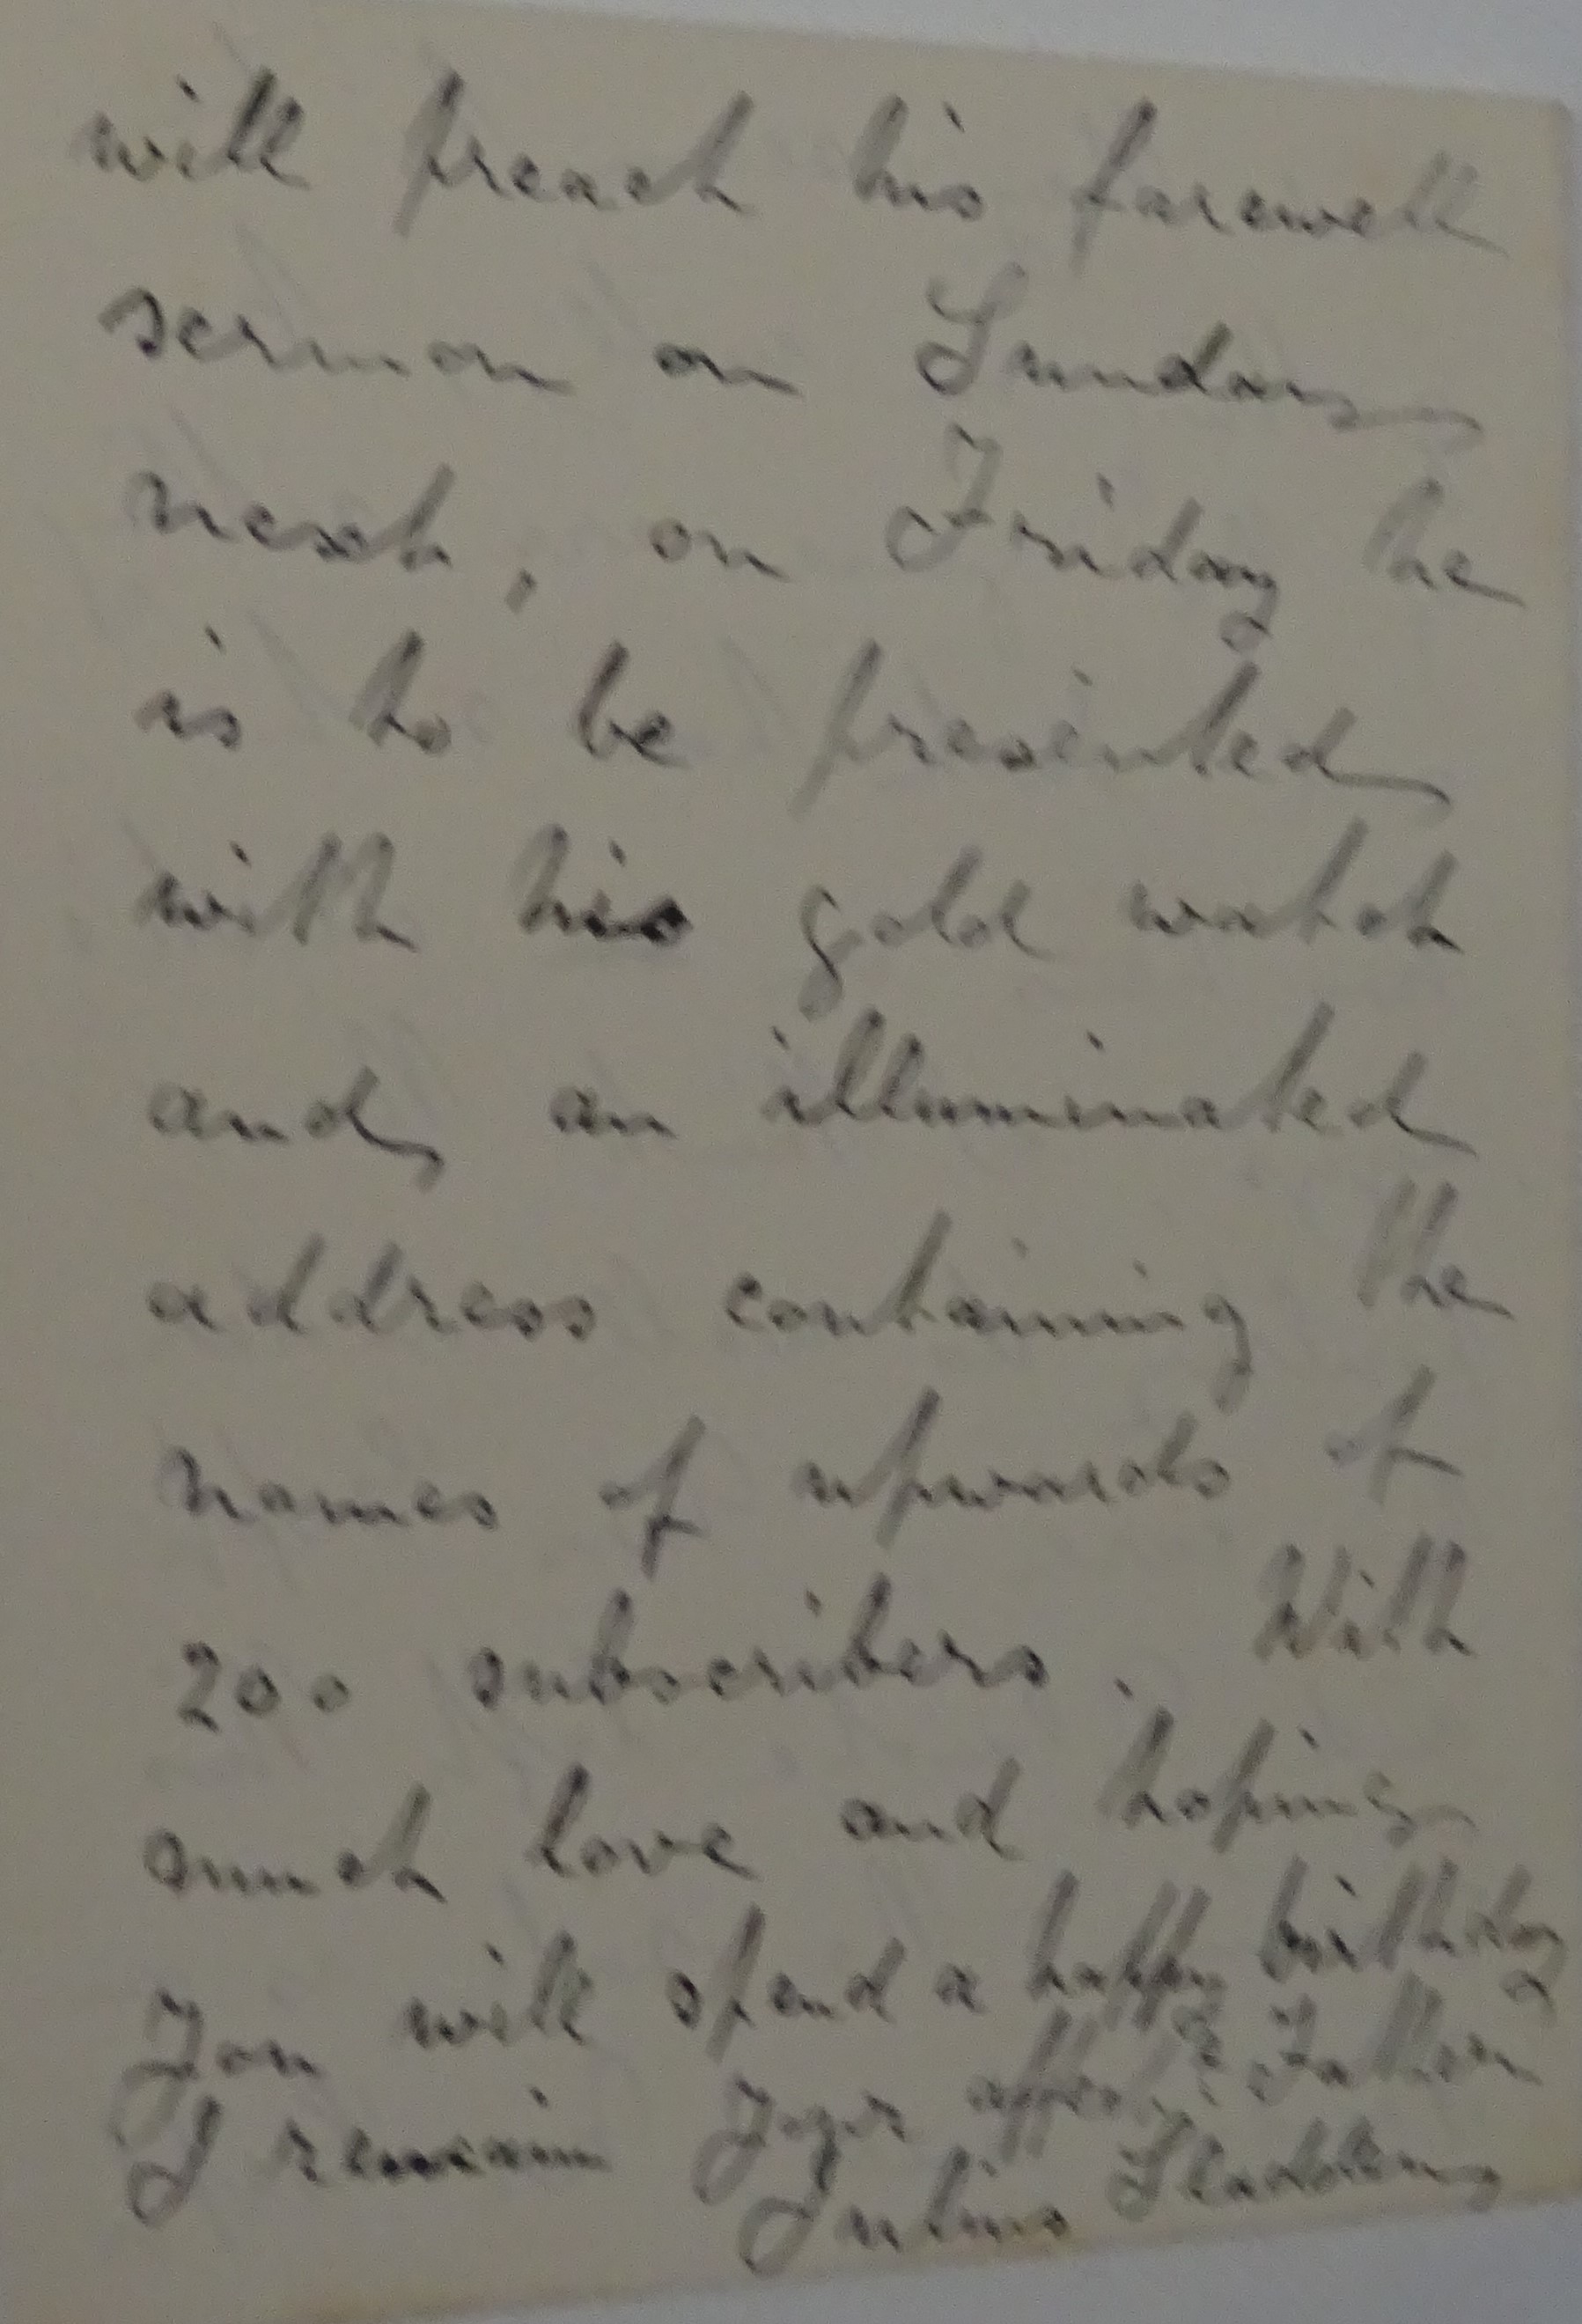 will preach his farewell
sermon on Sunday
next, on Friday he
is to be presented
with his gold watch
and an illuminated
address containing the
names of upwards of
200 subscribers. With
much love and hoping
you will spend a happy birthday
I remain Your affec. Father
Julius Sladding